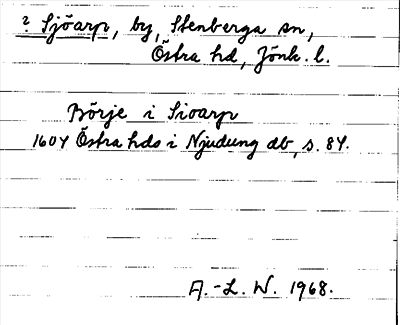 ? Sjöarp, by, Stenberga sn,
Östra hd, Jönk. l.
Börje i Sioarp
1604 Östra hds i Njudung db, s. 84.
A.-L. W. 1968.